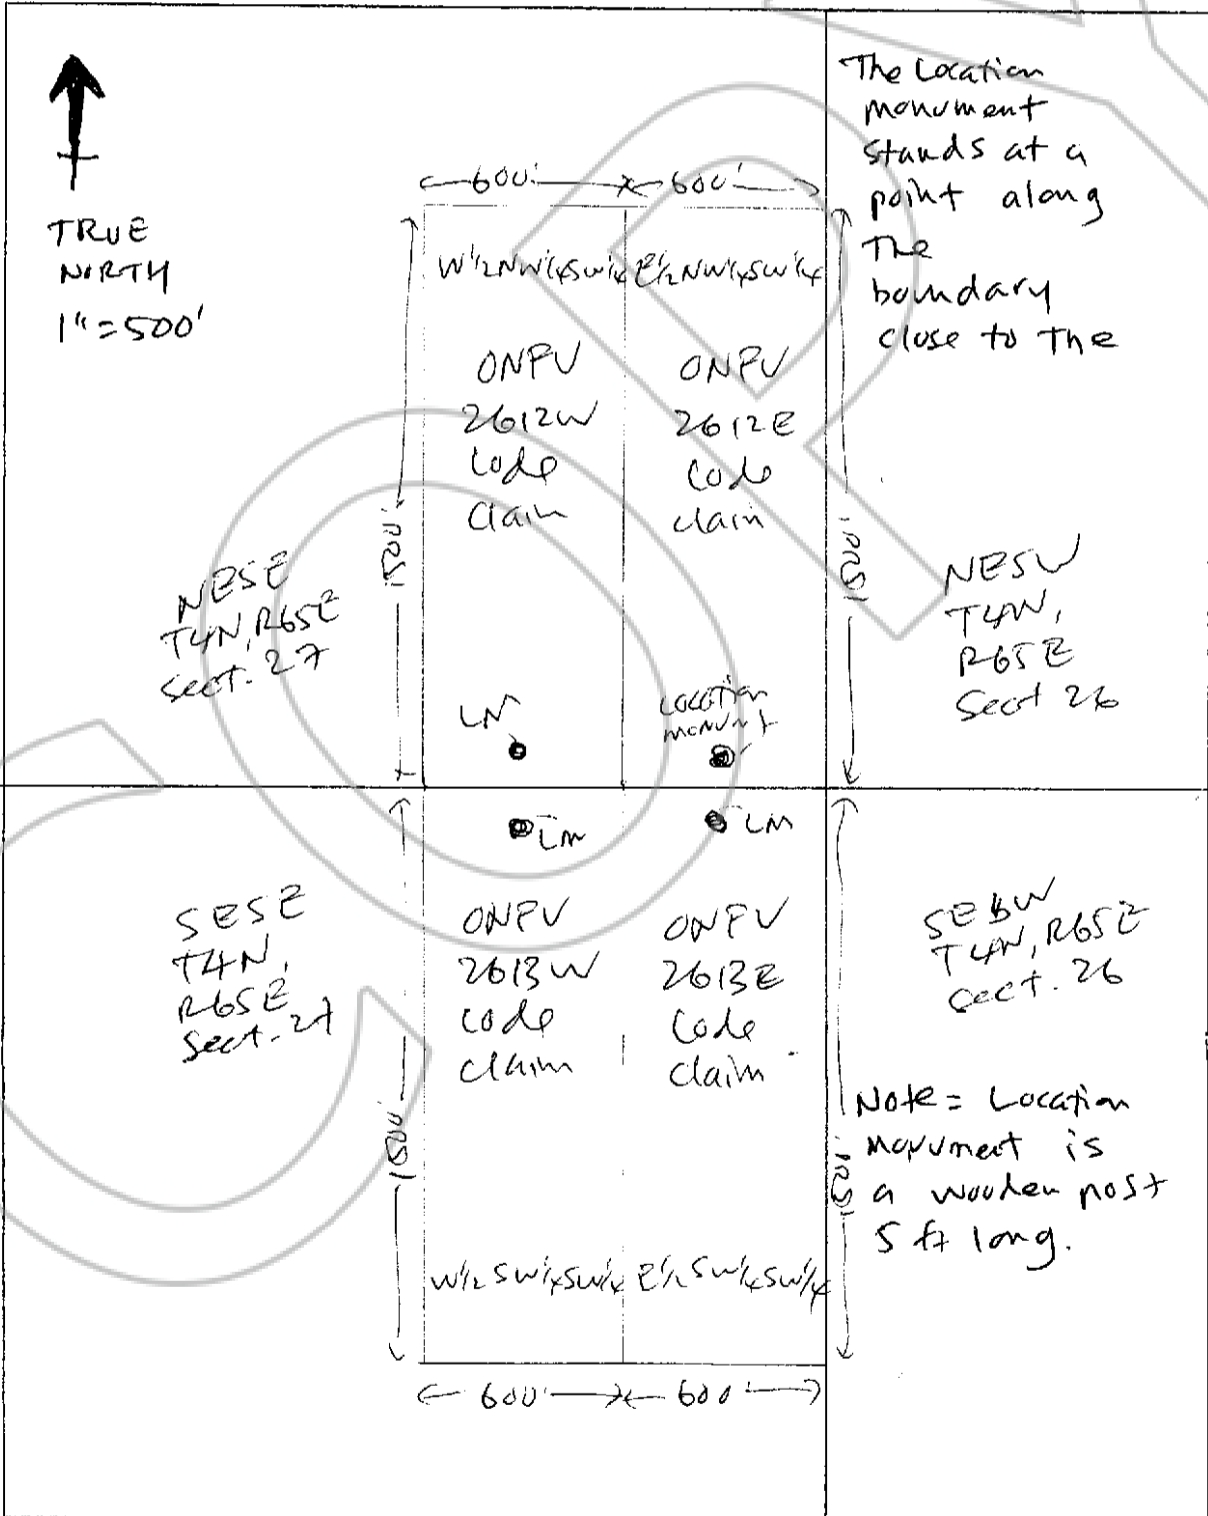 TRUE
NORTH
1"=500'
The Location
monument
stands at a
point along
The
boundary
close to the
600'
600'
W½NW¼SW¼
E½NW¼SW¼
ONPV
2612W
Code
Claim
ONPV
2612E
Code
claim
1500'
1500'
NESE
T4N, R65E
Sect. 27
NESW
T4N,
R65E
Sect 26
LM
Location
monumt
LM
LM
SESE
T4N,
R65E
Sect. 27
ONPV
2613W
Code
claim
ONPV
2613E
Code
claim
SESW
T4N, R65E
Sect. 26
1500'
1500'
Note = Location
Monument is
a wooden post
5 ft long.
W½SW¼SW¼
E½SW¼SW¼
600'
600'
COPY